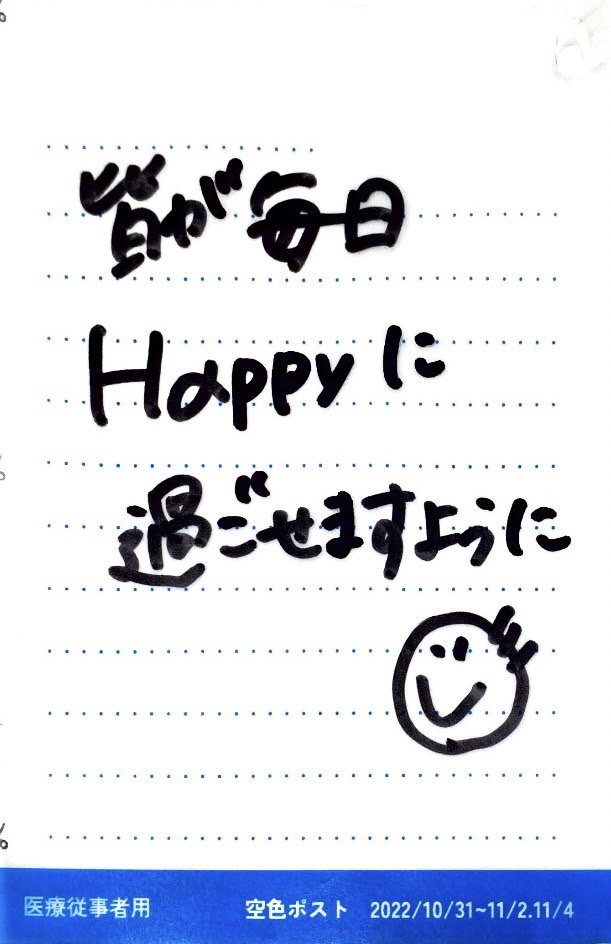 皆が毎日
Happyに
過ごせますように
医療従事者用 空色ポスト 2022/10/31~11/2.11/4